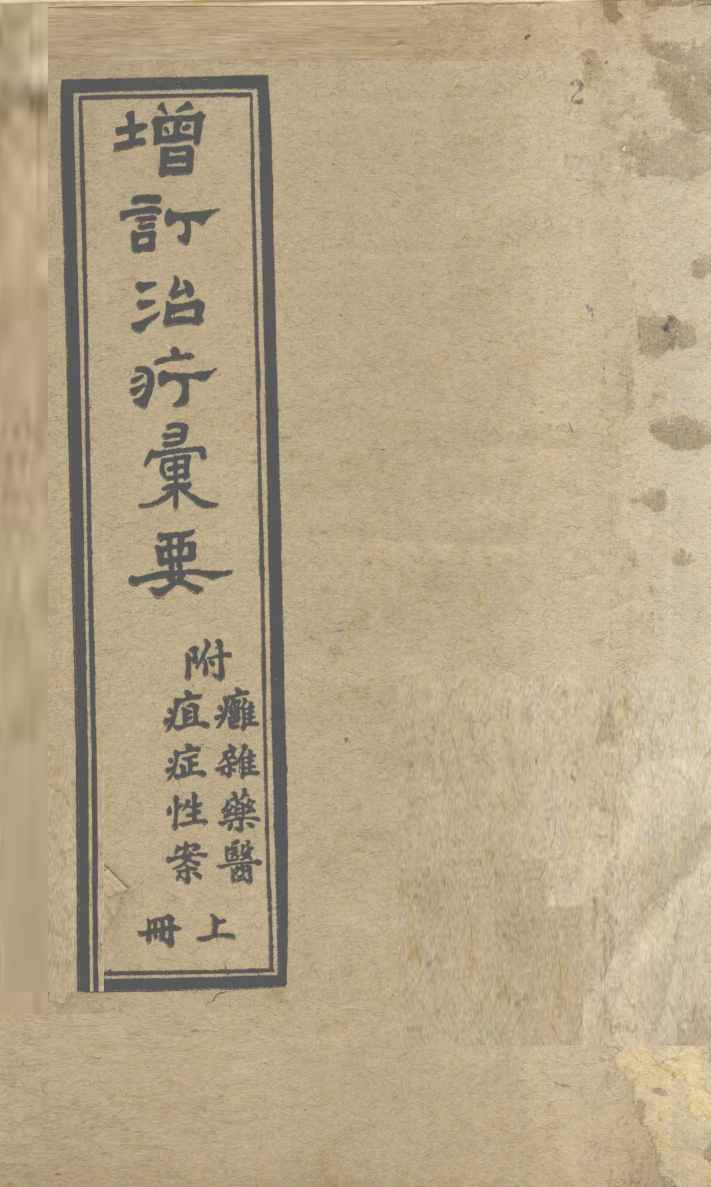 增訂治疔彙要
附
癰疽
雜症
藥性
醫案
上冊
2